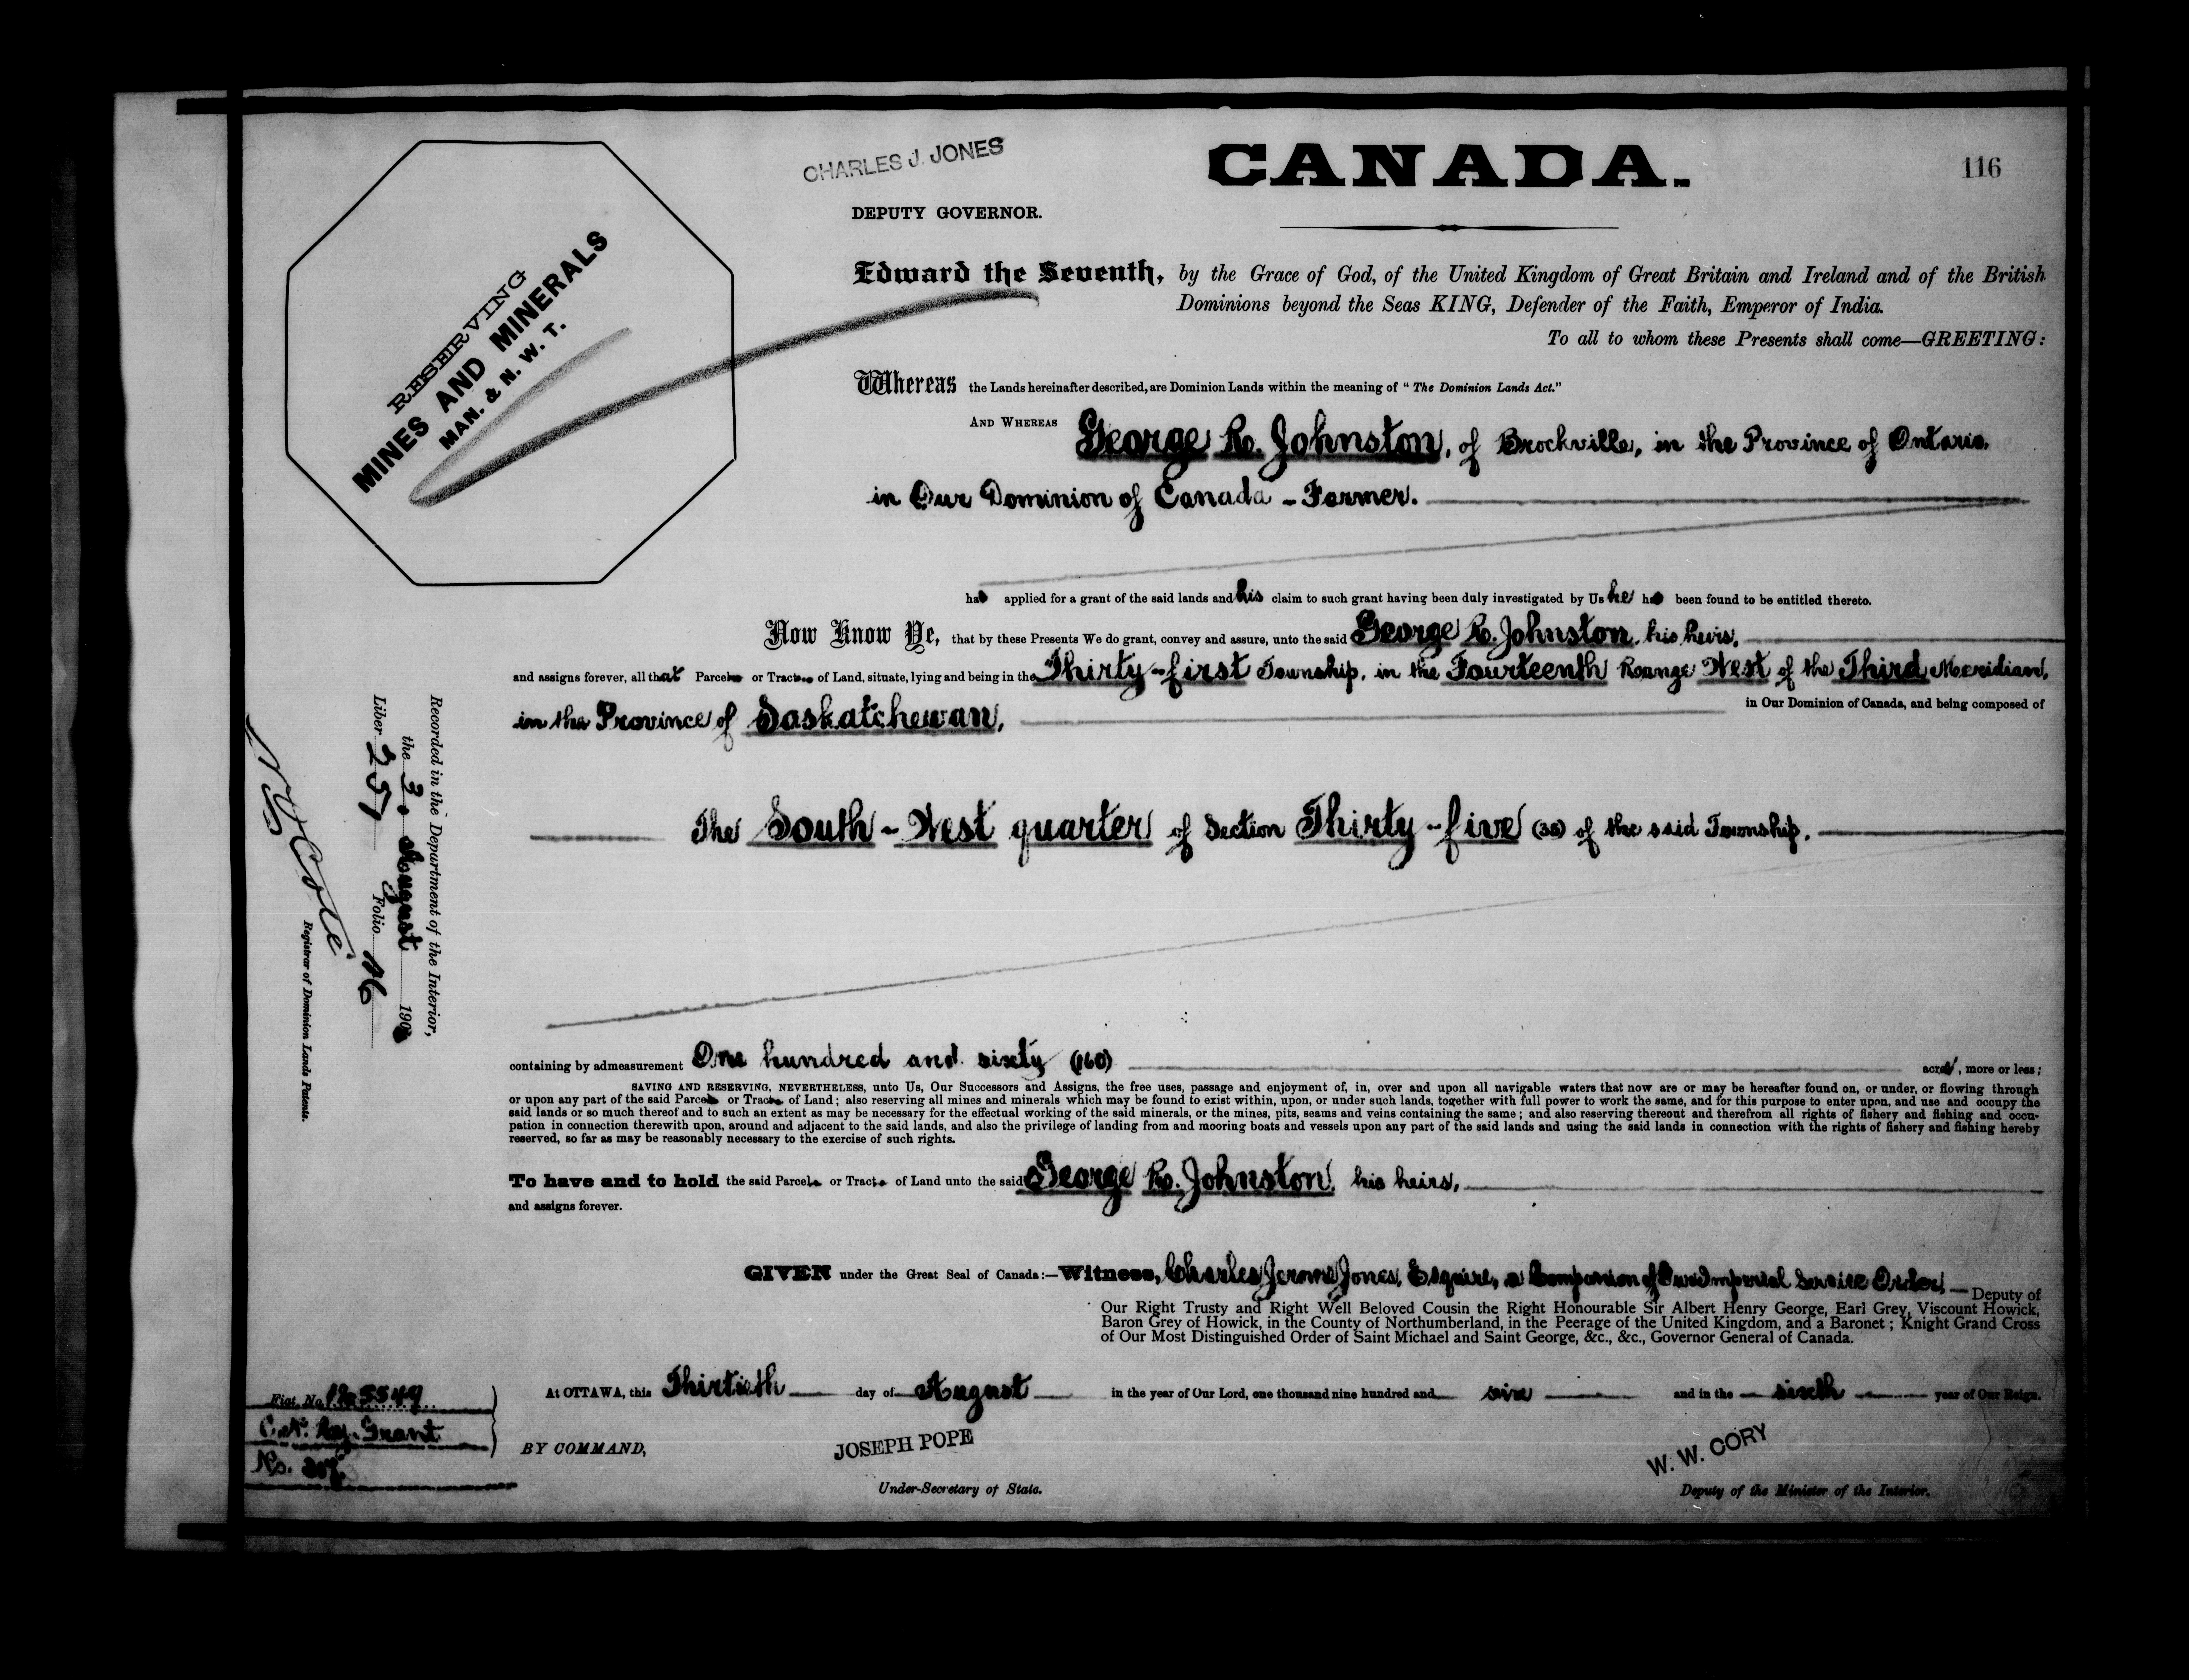 CHARLES J. JONES
DEPUTY GOVERNOR.
CANADA.
116
RESERVING
MINES AND MINERALS
MAN. & N. W. T.
Edward the Seventh, by the Grace of God, of the United Kingdom of Great Britain and Ireland and of the British
Dominions beyond the Seas KING, Defender of the Faith, Emperor of India.
To all to whom these Presents shall come—GREETING:
Whereas the Lands hereinafter described, are Dominion Lands within the meaning of "The Dominion Lands Act."
AND WHEREAS George R. Johnston, of Brockville, in the Province of Ontario,
in Our Dominion of Canada - Farmer.
has applied for a grant of the said lands and his claim to such grant having been duly investigated by Us he has been found to be entitled thereto.
Now Know Ye, that by these Presents We do grant, convey and assure, unto the said George R. Johnston, his heirs,
and assigns forever, all that Parcel or Tract of Land, situate, lying and being in the Thirty-first Township, in the Fourteenth Range West of the Third Meridian,
in the Province of Saskatchewan, in Our Dominion of Canada, and being composed of
The South-West quarter of Section Thirty-five (35) of the said Township.
containing by admeasurement One hundred and sixty (160) acres, more or less;
SAVING AND RESERVING, NEVERTHELESS, unto Us, Our Successors and Assigns, the free uses, passage and enjoyment of, in, over and upon all navigable waters that now are or may be hereafter found on, or under, or flowing through
or upon any part of the said Parcel or Tract of Land; also reserving all mines and minerals which may be found to exist within, upon, or under such lands, together with full power to work the same, and for this purpose to enter upon, and use and occupy the
said lands or so much thereof and to such an extent as may be necessary for the effectual working of the said minerals, or the mines, pits, seams and veins containing the same; and also reserving thereout and therefrom all rights of fishery and fishing and occu-
pation in connection therewith upon, around and adjacent to the said lands, and also the privilege of landing from and mooring boats and vessels upon any part of the said lands and using the said lands in connection with the rights of fishery and fishing hereby
reserved, so far as may be reasonably necessary to the exercise of such rights.
To have and to hold the said Parcel or Tract of Land unto the said George R. Johnston, his heirs,
and assigns forever.
GIVEN under the Great Seal of Canada:—Witness, Charles Jerome Jones, Esquire, a Companion of Our Imperial Service Order, Deputy of
Our Right Trusty and Right Well Beloved Cousin the Right Honourable Sir Albert Henry George, Earl Grey, Viscount Howick,
Baron Grey of Howick, in the County of Northumberland, in the Peerage of the United Kingdom, and a Baronet; Knight Grand Cross
of Our Most Distinguished Order of Saint Michael and Saint George, &c., &c., Governor General of Canada.
At OTTAWA, this Thirtieth day of August in the year of Our Lord, one thousand nine hundred and six and in the sixth year of Our Reign.
BY COMMAND,
JOSEPH POPE
Under-Secretary of State.
W. W. CORY
Deputy of the Minister of the Interior.
Recorded in the Department of the Interior,
the 30 August 190
Liber 257 Folio 116
N. O. Coté
Registrar of Dominion Lands Patents.
Fiat. No.
Grant
No.